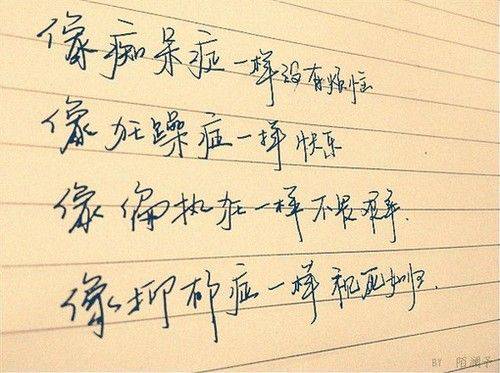 像痴呆症一样没有烦恼
像狂躁症一样快乐
像偏执狂一样不畏艰辛.
像抑郁症一样视死如归.
BY 陌澜予